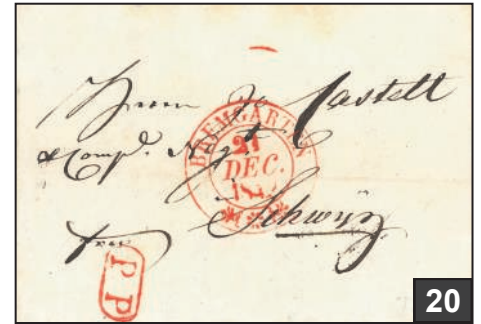 Herrn
Castell
& Comp.
BREMGARTEN
21
DEC.
Schwyz
P P
20